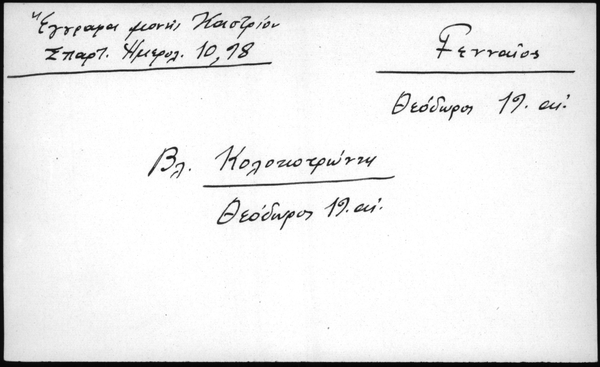 Ἔγγραφα μονῆς Καστρίου
Σπαρτ. Ημερολ. 10, 98
Γενναῖος
Θεόδωρος 19. αἰ.
Βλ. Κολοκοτρώνης
Θεόδωρος 19. αἰ.